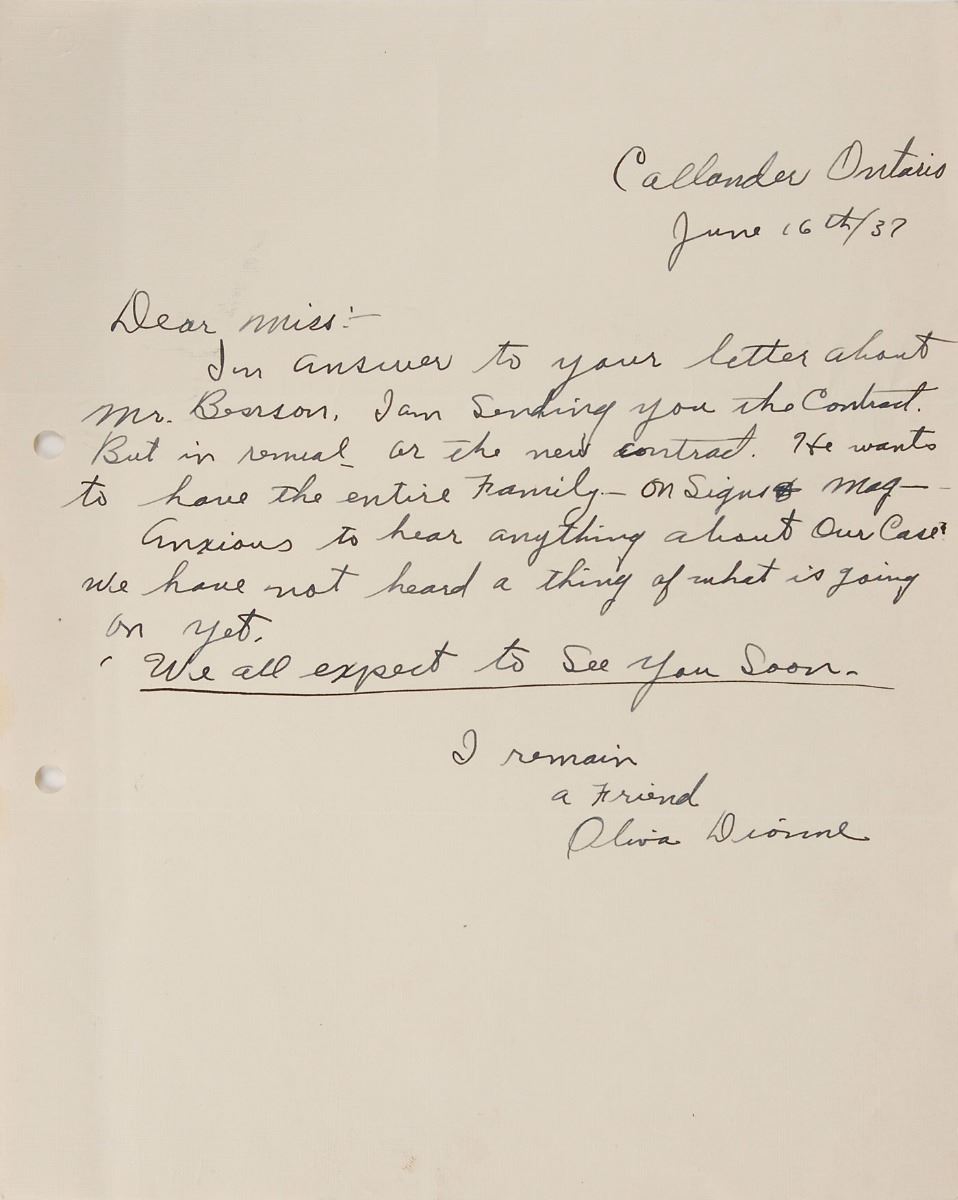 Callander Ontario
June 16th/37
Dear Miss:-
In answer to your letter about
Mr. Bearson, I am Sending you the Contract.
But in renual or the new contract. He wants
to have the entire Family - on Signs Mag -
Anxious to hear anything about Our Case?
We have not heard a thing of what is going
on yet.
We all expect to See You Soon.
I remain
a Friend
Oliva Dionne